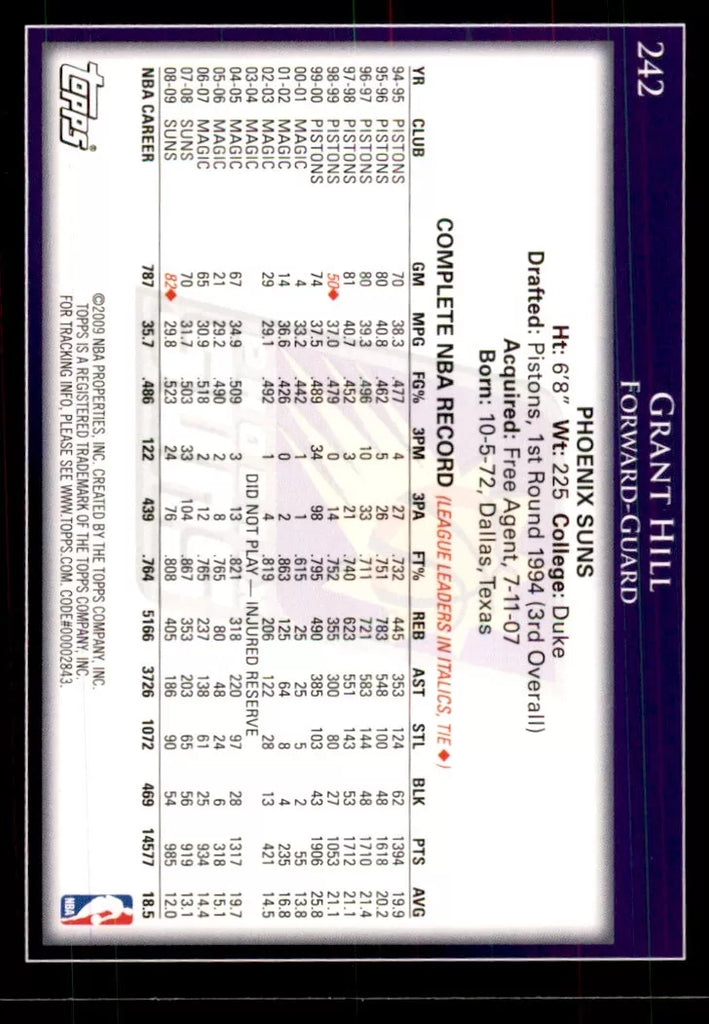 242
GRANT HILL
FORWARD-GUARD
PHOENIX SUNS
Ht: 6'8" Wt: 225 College: Duke
Drafted: Pistons, 1st Round 1994 (3rd Overall)
Acquired: Free Agent, 7-11-07
Born: 10-5-72, Dallas, Texas
COMPLETE NBA RECORD (LEAGUE LEADERS IN ITALICS, TIE ♦)
YR CLUB GM MPG FG% 3PM 3PA FT% REB AST STL BLK PTS AVG
94-95 PISTONS 70 38.3 .477 4 27 .732 445 353 124 62 1394 19.9
95-96 PISTONS 80 40.8 .462 5 26 .751 783 548 100 48 1618 20.2
96-97 PISTONS 80 39.3 .496 10 33 .711 721 583 144 48 1710 21.4
97-98 PISTONS 81 40.7 .452 3 21 .740 623 551 143 53 1712 21.1
98-99 PISTONS 50♦ 37.0 .479 0 14 .752 355 300 80 27 1053 21.1
99-00 PISTONS 74 37.5 .489 34 98 .795 490 385 103 43 1906 25.8
00-01 MAGIC 4 33.2 .442 1 1 .615 25 25 5 2 55 13.8
01-02 MAGIC 14 36.6 .426 0 2 .863 125 64 8 4 235 16.8
02-03 MAGIC 29 29.1 .492 1 4 .819 206 122 28 13 421 14.5
03-04 MAGIC DID NOT PLAY — INJURED RESERVE
04-05 MAGIC 67 34.9 .509 3 13 .821 318 220 97 28 1317 19.7
05-06 MAGIC 21 29.2 .490 2 8 .765 80 48 24 6 318 15.1
06-07 MAGIC 65 30.9 .518 2 12 .765 237 138 61 25 934 14.4
07-08 SUNS 70 31.7 .503 33 104 .867 353 203 65 56 919 13.1
08-09 SUNS 82♦ 29.8 .523 24 76 .808 405 186 90 54 985 12.0
NBA CAREER 787 35.7 .486 122 439 .764 5166 3726 1072 469 14577 18.5
topps®
©2009 NBA PROPERTIES, INC. CREATED BY THE TOPPS COMPANY, INC.
TOPPS IS A REGISTERED TRADEMARK OF THE TOPPS COMPANY, INC.
FOR TRACKING INFO, PLEASE SEE WWW.TOPPS.COM. CODE#00002843.
NBA